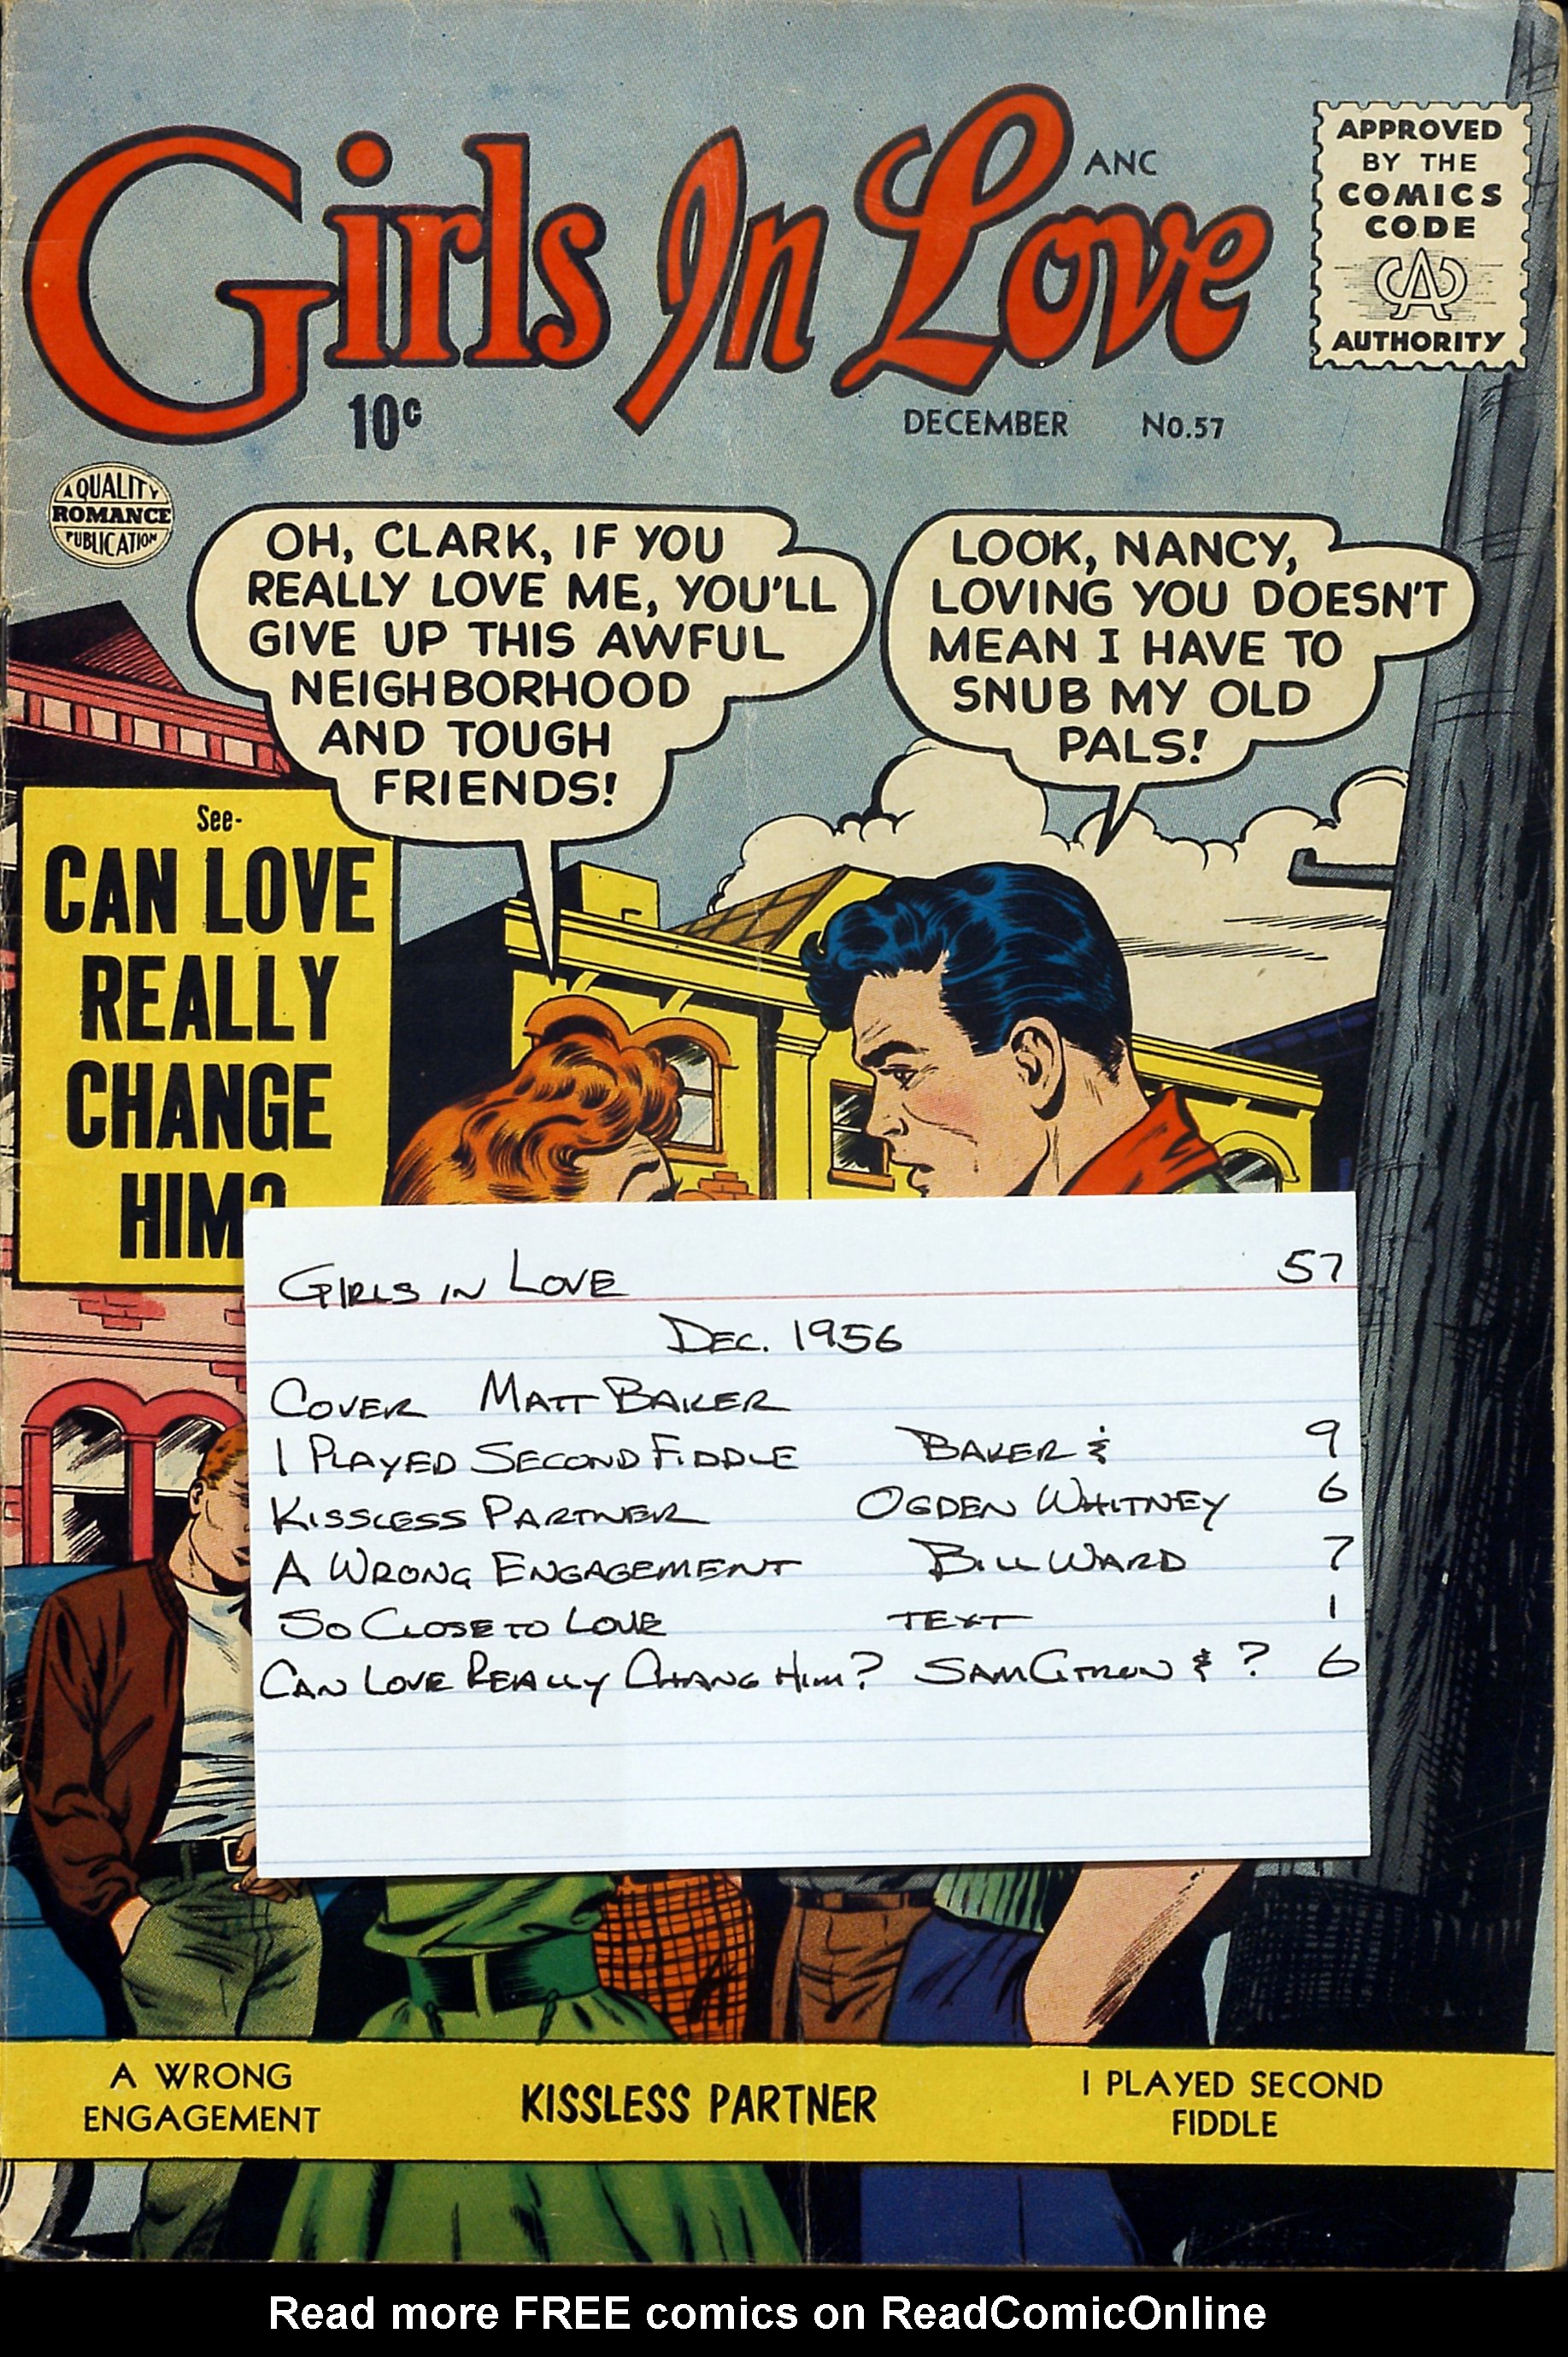 Girls In Love
ANC
APPROVED
BY THE
COMICS
CODE
CA
AUTHORITY
10¢
DECEMBER No.57
A QUALITY
ROMANCE
PUBLICATION
OH, CLARK, IF YOU
REALLY LOVE ME, YOU'LL
GIVE UP THIS AWFUL
NEIGHBORHOOD
AND TOUGH
FRIENDS!
LOOK, NANCY,
LOVING YOU DOESN'T
MEAN I HAVE TO
SNUB MY OLD
PALS!
See-
CAN LOVE
REALLY
CHANGE
HIM?
GIRLS IN LOVE 57
DEC. 1956
COVER MATT BAKER
I PLAYED SECOND FIDDLE BAKER & 9
KISSLESS PARTNER OGDEN WHITNEY 6
A WRONG ENGAGEMENT BILL WARD 7
SO CLOSE TO LOVE TEXT 1
CAN LOVE REALLY CHANG HIM? SAM CITRON & ? 6
A WRONG
ENGAGEMENT
KISSLESS PARTNER
I PLAYED SECOND
FIDDLE
Read more FREE comics on ReadComicOnline